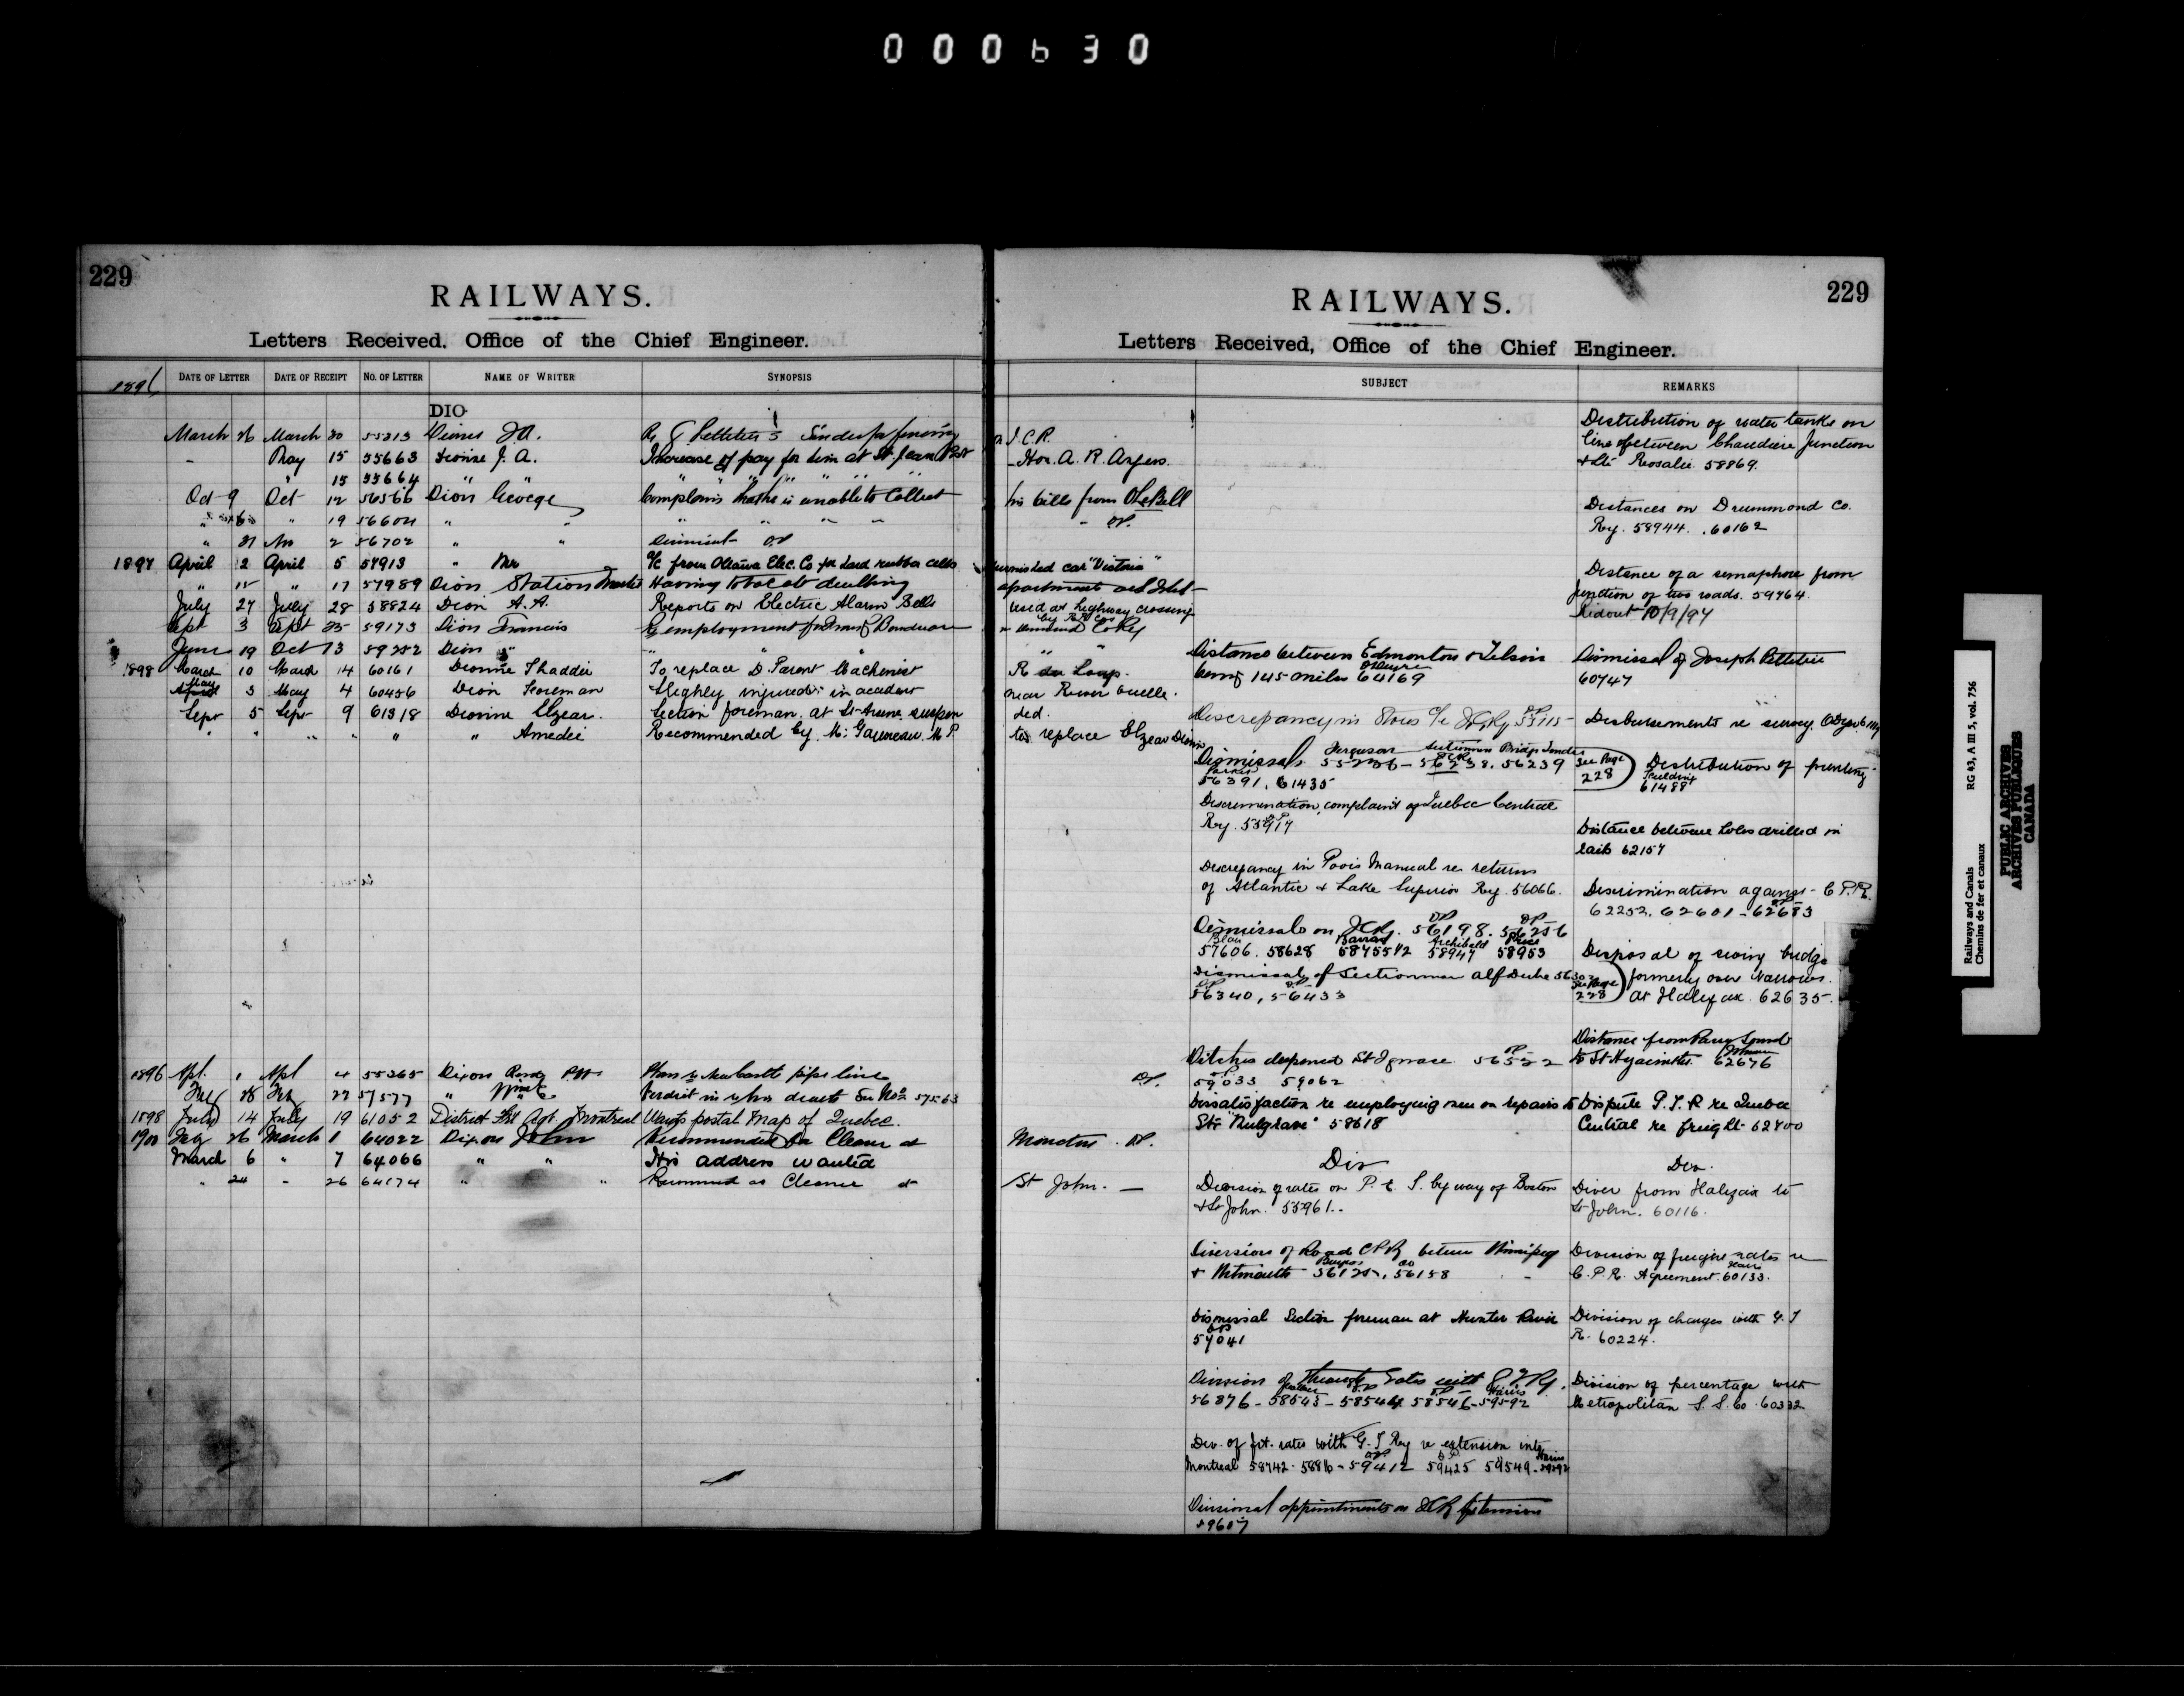 000630
229
RAILWAYS.
Letters Received, Office of the Chief Engineer.
1896 DATE OF LETTER DATE OF RECEIPT NO. OF LETTER NAME OF WRITER SYNOPSIS
DIO
March 26 March 30 55213 J.A. Re Pelletier's
May 15 55663 Dionne J. A. Increase of pay for him at St. Jean Port
" 15 55664 " " " "
Oct 9 Oct 12 56566 Dion George Complains that he is unable to Collect
" " 19 56604 " " " " "
" 31 2 56702 " " Dismissal OP
1897 April 2 April 5 57913 " Mr a/c from Ottawa Elec. Co for hard rubber cells
" 15 " 17 57989 Dion Station Master Having to vacate dwelling
July 27 July 28 58824 Dion A.A. Reports on Electric Alarm Bells
Sept 3 Sept 25 59173 Dion Francis Re employment
June 19 Oct 13 59252 Dion " " " "
1898 March 10 March 14 60161 Dionne Thaddée To replace D. Parent Machinist
May 3 May 4 60456 Dion Foreman Slighly injured in accident
Sept 5 Sept 9 61318 Dionne Elzear. Section foreman at St-Arsene suspen
" " " " " " Amedée Recommended by M. Gauvreau M P.
1896 Apl. 1 Apl 4 55265 Dixon
57577 " " Verdict in re his death See No 57563
1898 July 14 July 19 61052 District Frt Agt Montreal Wants postal Map of Quebec.
1900 Feby 26 March 1 64022 Dixon John Recommended for Cleaner at
March 6 " 7 64066 " " His address wanted
" 24 " 26 64174 " " Recommend as Cleaner at
229
RAILWAYS.
Letters Received, Office of the Chief Engineer.
SUBJECT REMARKS
I.C.R.
Hon. A. R. Angers.
his bills from O LeBell
" OP.
furnished car "Victoria"
apartments
used at highway crossing
by R.R Cos
" "
R du Loup.
near River Ouelle.
ded.
to replace Elzear Dionne
OP.
Moncton. OP.
St John. —
Distance between Edmonton & Nelson
being 145 miles 64169
Discrepancy in Stores
Dismissals 56238. 56239
56391, 61435
Discrimination, complaint of Quebec Central
Ry. 55917
Discrepancy in Poor's Manual re returns
of Atlantic & Lake Superior Ry. 56066.
Dismissals on ICRy. 56198. 56256
Blair Barras Archibald Price
57606. 58628 58755 1/2 58947 58953
Dismissal of Sectionman Alf Dube
56340, 56433
Ditches deepened St Ignace 56552
59033 59062
Dissatisfaction re employing men on repairs to
Str "Mulgrave" 58618
Div
Division of rates on P. E. I. by way of Boston
& St John. 55961.
Diversion of Road C.P.R. between Winnipeg
& Whitmouth 56158
Dismissal Section foreman at Hunter River
OP
57041
Division of through rates with G T Ry.
56876 - 58543 - 58544 58546 - 59592
Div. of frt. rates with G. T Ry re extension into
Montreal 58742. 58816 - 59412 59425 59549
Divisional appointments on ICR Extension
59607
Distribution of water tanks on
line between Chaudiere Junction
& Ste Rosalie. 58869.
Distances on Drummond Co.
Ry. 58944. .60162
Distance of a semaphore from
junction of two roads. 59464.
Ridout 10/9/97
Dismissal of Joseph Pelletier
60747
Disbursements re survey.
See Page
228
Distribution of printing
61488
Distance between holes drilled in
rails 62157
Discrimination against C.P.R.
62252. 62601 - 62683
Disposal of swing bridge
formerly over Narrows
at Halifax. 62635.
See Page
228
Distance from Parry Sound
to St Hyacinthe. 62676
Dispute P.S.R re Quebec
Central re freight 62800
Div.
Diver from Halifax to
St John. 60116.
Division of freight rates re
C.P.R. Agreement. 60133.
Division of charges with G. T
R. 60224.
Division of percentage with
Metropolitan S. S. Co. 60332
Railways and Canals
Chemins de fer et canaux
RG 43, A III 5, vol. 756
PUBLIC ARCHIVES
ARCHIVES PUBLIQUES
CANADA